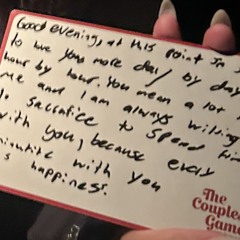 Good evening, at this point in
to love you more day by day
hour by hour. You mean a lot
me and I am always willing
to sacrifice to spend
with you, because every
with you
s happiness.
The
Couples
Game